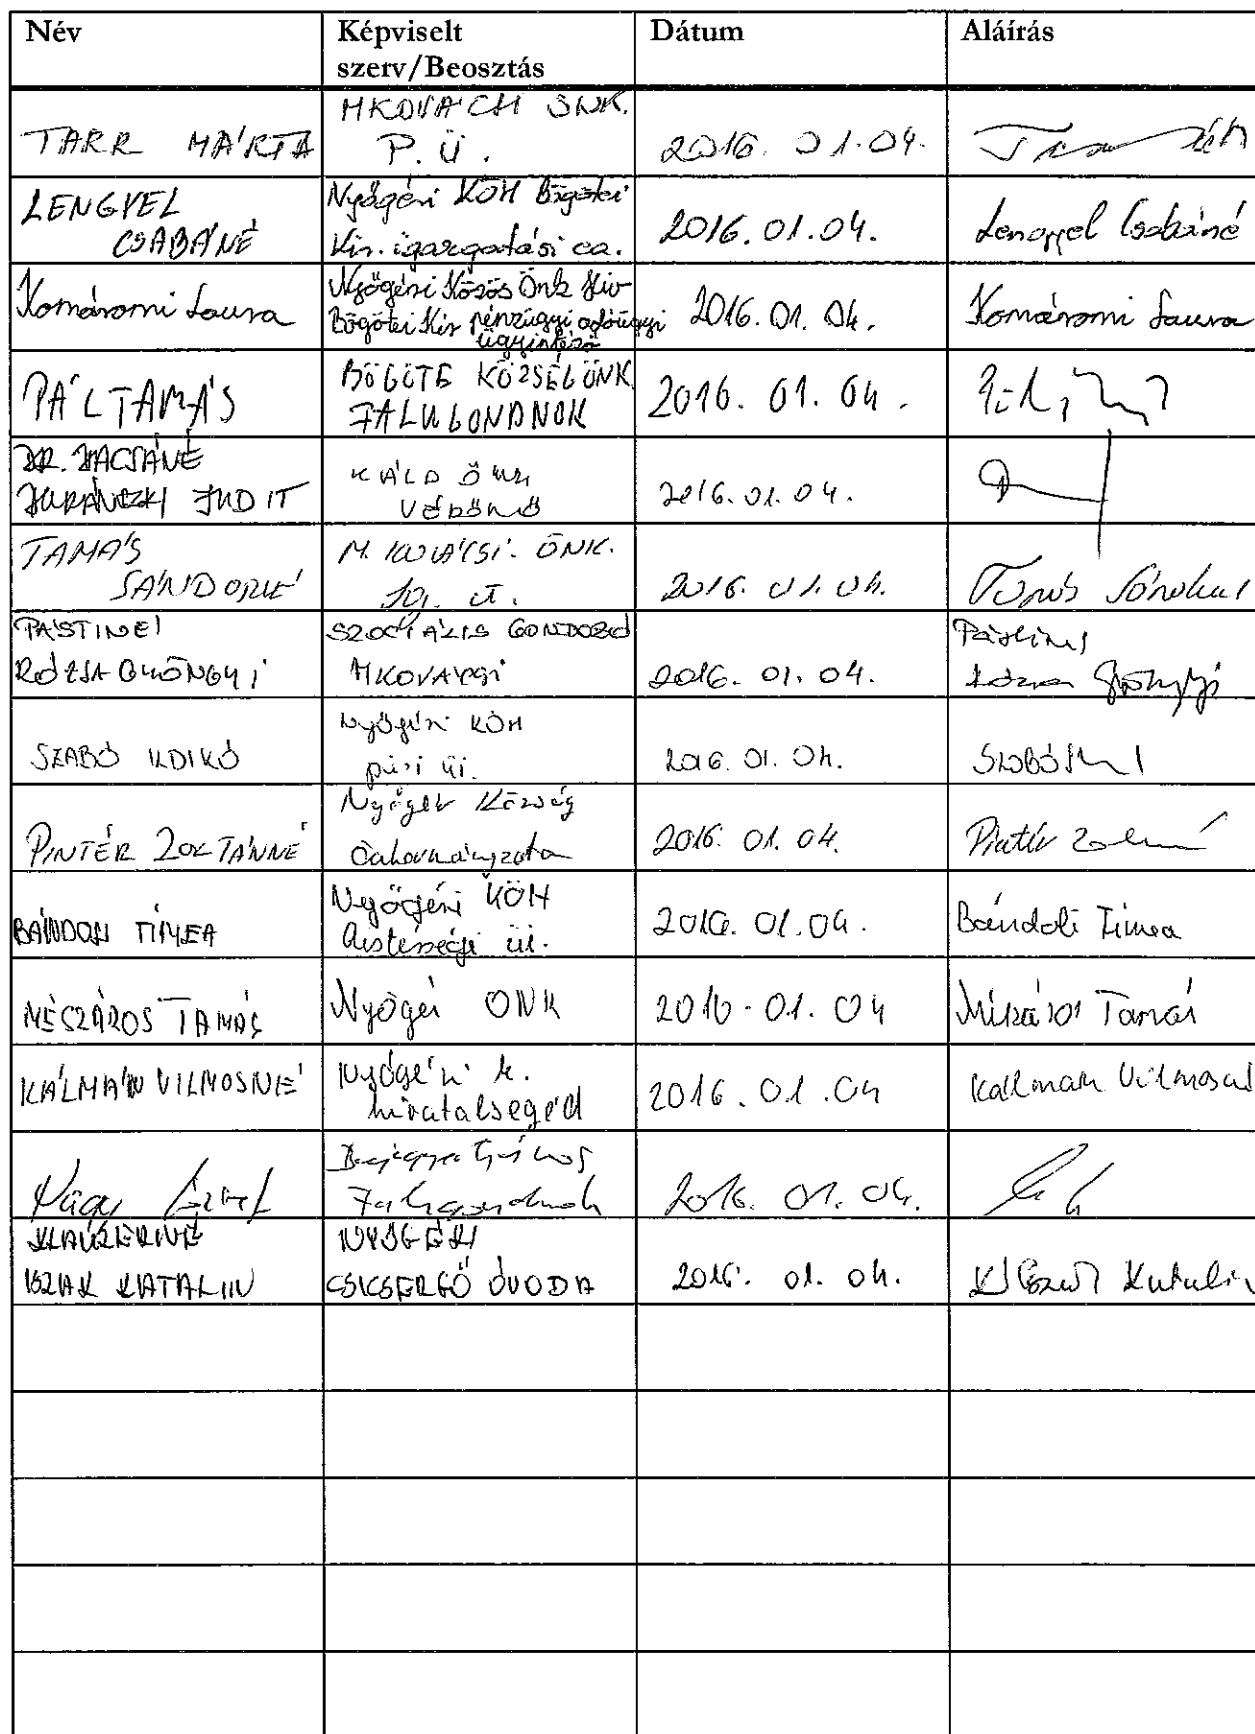 Név Képviselt szerv/Beosztás Dátum Aláírás
TARR MÁRTA P. Ü. 2016. 01.04.
LENGYEL CSABÁNÉ Nyőgéri KÖH Bögötei Kir. igazgatási ea. 2016.01.04. Lengyel Csabáné
Komáromi Laura Nyőgéri Közös Önk Hiv Bögötei Kir pénzügyi adóügyi ügyintéző 2016.01.04. Komáromi Laura
PÁL TAMÁS BÖGÖTE KÖZSÉG ÖNK. FALUGONDNOK 2016. 01. 04.
DR. JUDIT KÁLD ÖNK VÉDŐNŐ 2016.01.04.
TAMÁS SÁNDORNÉ ÖNK. 2016. 01. 04. Tamás Sándorné
PÁSTINÉ RÓZSA GYÖNGYI SZOCIÁLIS GONDOZÓ MKOVÁCSI 2016. 01. 04. Pástiné Rózsa Gyöngyi
SZABÓ ILDIKÓ Nyőgéri KÖH 2016. 01. 04.
PINTÉR ZOLTÁNNÉ Nyőgér Község Önkormányzata 2016. 01. 04. Pintér
TÍMEA Nyőgéri KÖH 2016. 01. 04. Tímea
MÉSZÁROS TAMÁS Nyőgér ÖNK 2016.01.04 Mészáros Tamás
KÁLMÁN VILMOSNÉ Nyőgéri k. hivatalsegéd 2016.01.04 Kálmán Vilmosné
Nagy Falugondnok 2016. 01. 04.
KATALIN NYŐGÉRI CSICSERGŐ ÓVODA 2016. 01. 04. Katalin